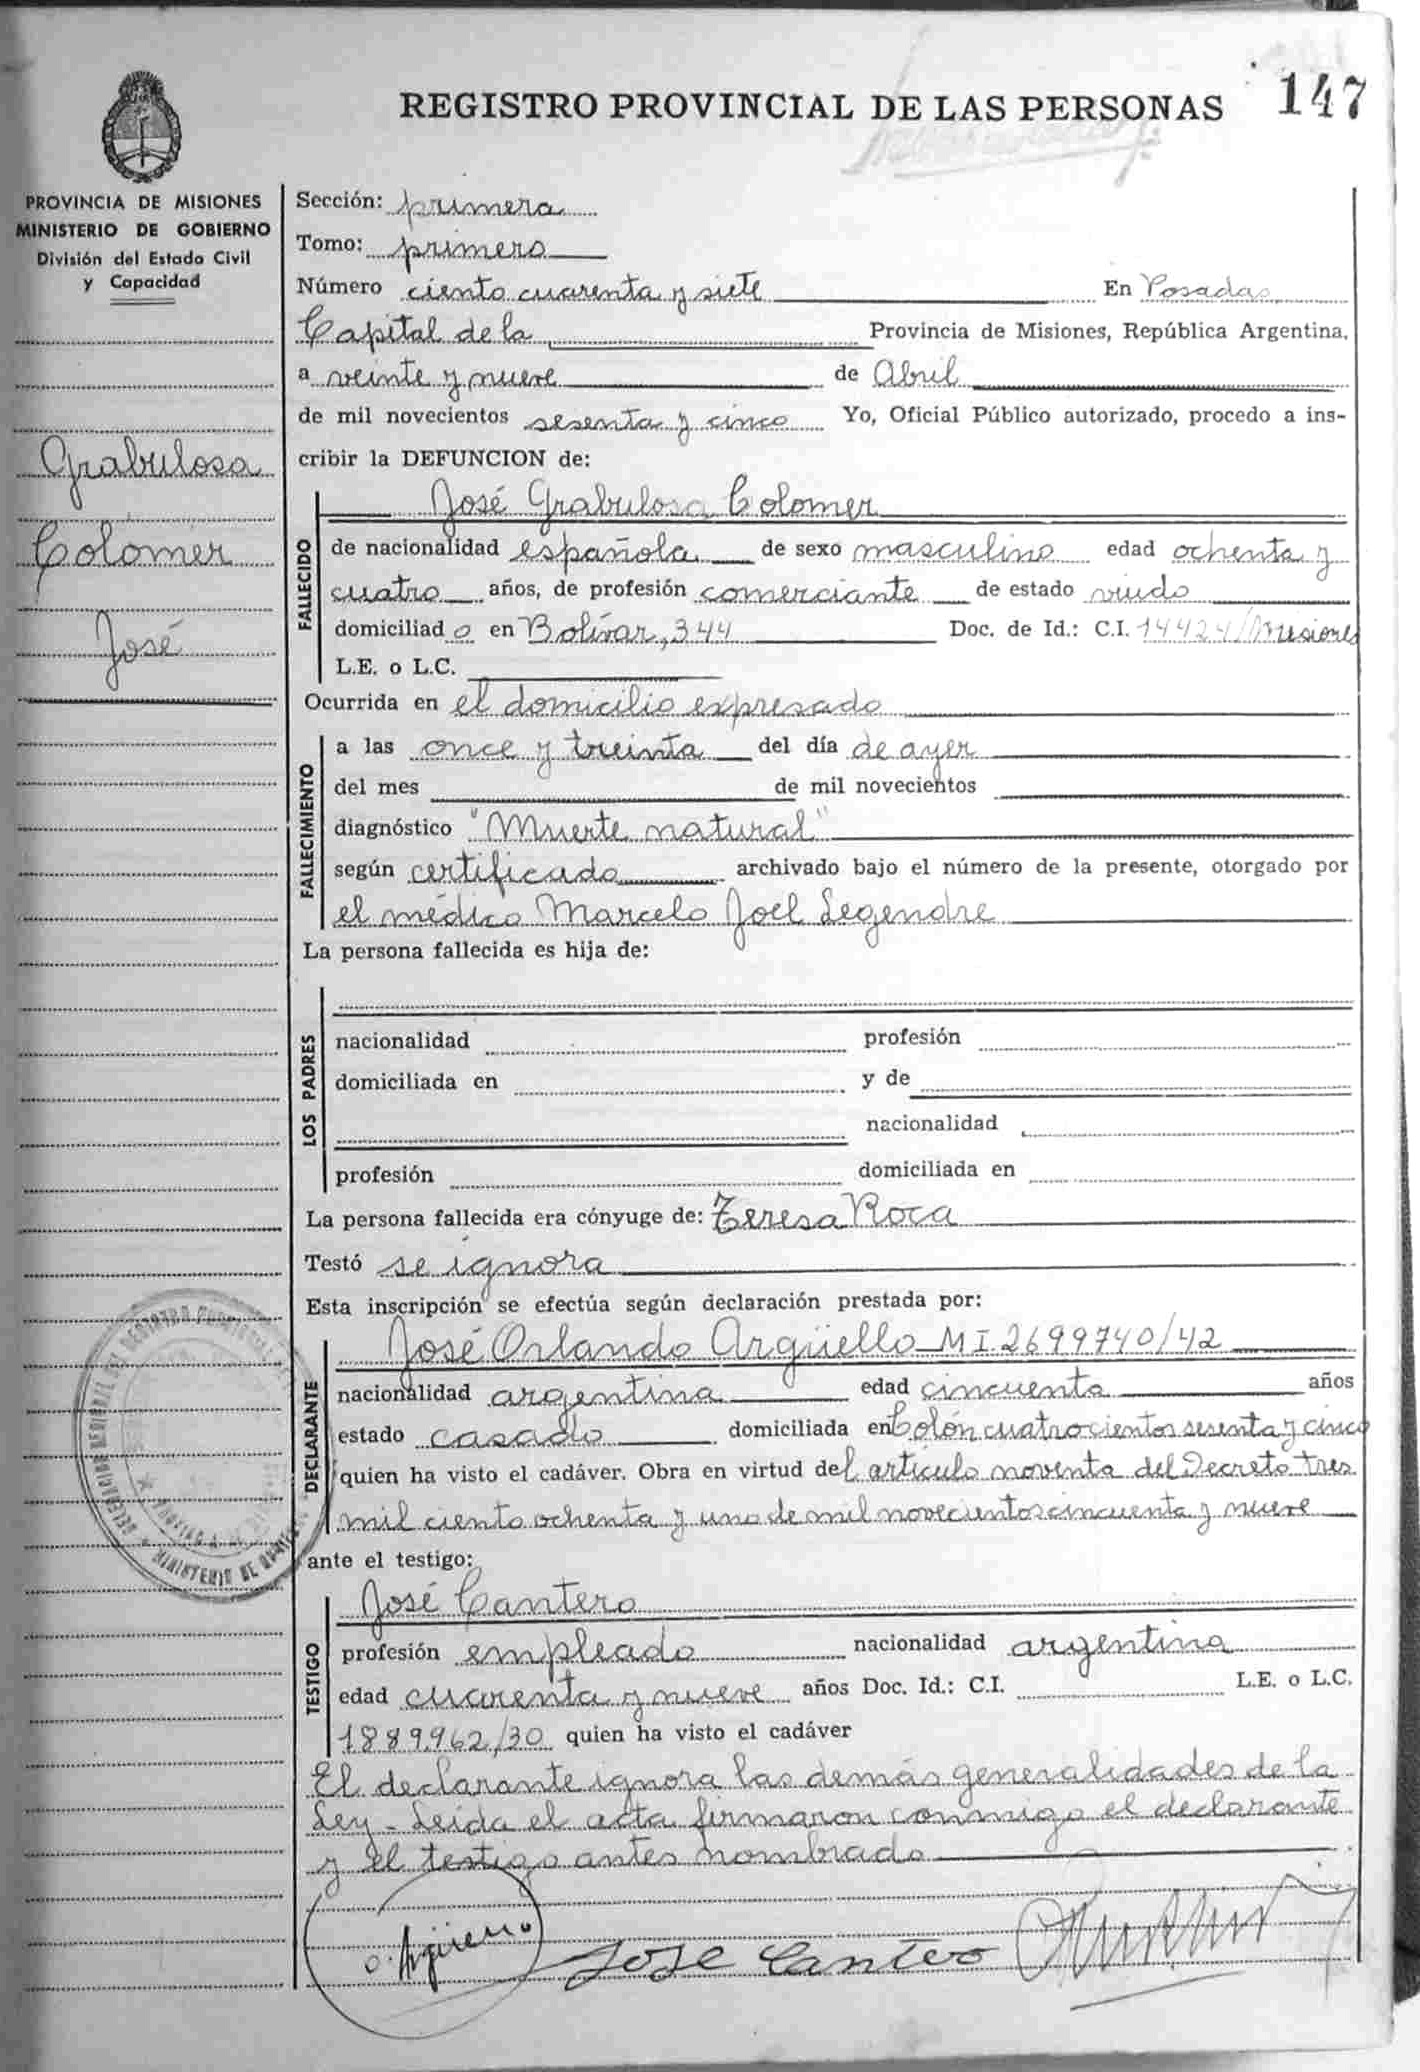 REGISTRO PROVINCIAL DE LAS PERSONAS 147
PROVINCIA DE MISIONES
MINISTERIO DE GOBIERNO
División del Estado Civil
y Capacidad
Grabulosa
Colomer
José
Sección: primera
Tomo: primero
Número ciento cuarenta y siete En Posadas,
Capital de la Provincia de Misiones, República Argentina,
a veinte y nueve de Abril
de mil novecientos sesenta y cinco Yo, Oficial Público autorizado, procedo a ins-
cribir la DEFUNCION de:
FALLECIDO
José Grabulosa Colomer
de nacionalidad española de sexo masculino edad ochenta y
cuatro años, de profesión comerciante de estado viudo
domiciliad o en Bolívar, 344 Doc. de Id.: C.I. 14424/Misiones
L.E. o L.C.
Ocurrida en el domicilio expresado
FALLECIMIENTO
a las once y treinta del día de ayer
del mes de mil novecientos
diagnóstico "Muerte natural"
según certificado archivado bajo el número de la presente, otorgado por
el médico Marcelo Joel Legendre
La persona fallecida es hija de:
LOS PADRES
nacionalidad profesión
domiciliada en y de
nacionalidad
profesión domiciliada en
La persona fallecida era cónyuge de: Teresa Roca
Testó se ignora
Esta inscripción se efectúa según declaración prestada por:
DECLARANTE
José Orlando Argüello M I. 2699740/42
nacionalidad argentina edad cincuenta años
estado casado domiciliada en Colón cuatrocientos sesenta y cinco
quien ha visto el cadáver. Obra en virtud del artículo noventa del Decreto tres
mil ciento ochenta y uno de mil novecientos cincuenta y nueve
ante el testigo:
TESTIGO
José Cantero
profesión empleado nacionalidad argentina
edad cuarenta y nueve años Doc. Id.: C.I. L.E. o L.C.
1889.962/30 quien ha visto el cadáver
El declarante ignora las demás generalidades de la
Ley - Leída el acta firmaron conmigo el declarante
y el testigo antes nombrado
O. Argüello Jose Cantero
MINISTERIO DE